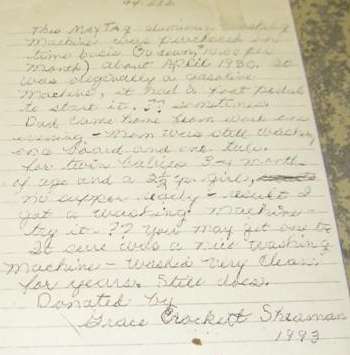 This MayTag aluminum washing
Machine was purchased on
time basis (10 down, 10.00 per
Month) about April 1930. It
was originally a gasoline
Machine, it had a foot pedal
to start it. ?? sometimes
Dad came home from work one
evening - Mom was still washing
on a board and one tub.
for twin babies 3-4 months
of age and a 2½ yr. girl,
no supper ready - result I
got a washing machine -
try it - ?? You may get one to
It sure was a nice washing
Machine - washed very clean
for years. Still does.
Donated by
Grace Crockett Sherman
1993